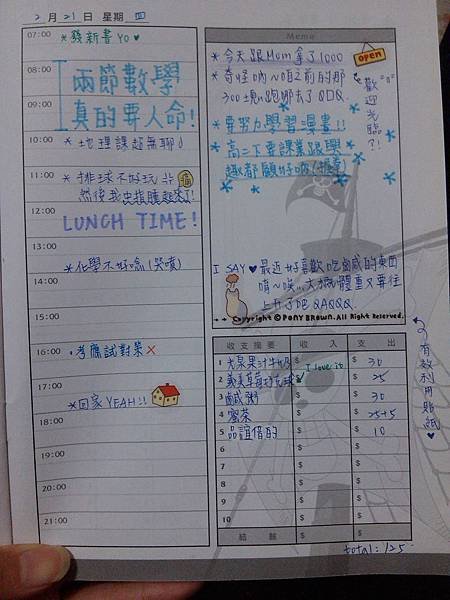 2月21日 星期四
07:00 *發新書YO♥
08:00 兩節數學
09:00 真的要人命!
10:00 *地理課超無聊♪
11:00 *排球不好玩
然後我中指腫起來了!
12:00
LUNCH TIME!
13:00
*化學不好唸(哭噴)
14:00
15:00
16:00 *考應試對策×
17:00
*回家YEAH!!
18:00
19:00
20:00
21:00
Memo
*今天跟Mom拿了1000
*奇怪吶~咱之前的那
300塊跑哪去了QDQ.
*要努力學習漫畫!!
*高二下要課業跟興
趣都顧好
OPEN
歡迎光臨?!
I SAY♥最近好喜歡吃鹹的東西
唷~唉...大概體重又要往
上升了吧QAQQQ.
Copyright © PONY BROWN. All Right Reserved.
收支摘要 收入 支出
1 光泉果汁牛奶 $ $ 30
2 義美草莓巧克球 $ I love it $ 25
3 鹹粥 $ $ 30
4 蜜茶 $ $ 25+5
5 品誼借的 $ $ 10
6 $ $
7 $ $
8 $ $
9 $ $
10 $ $
結餘 $ $
total: 125
有效利用貼紙♥